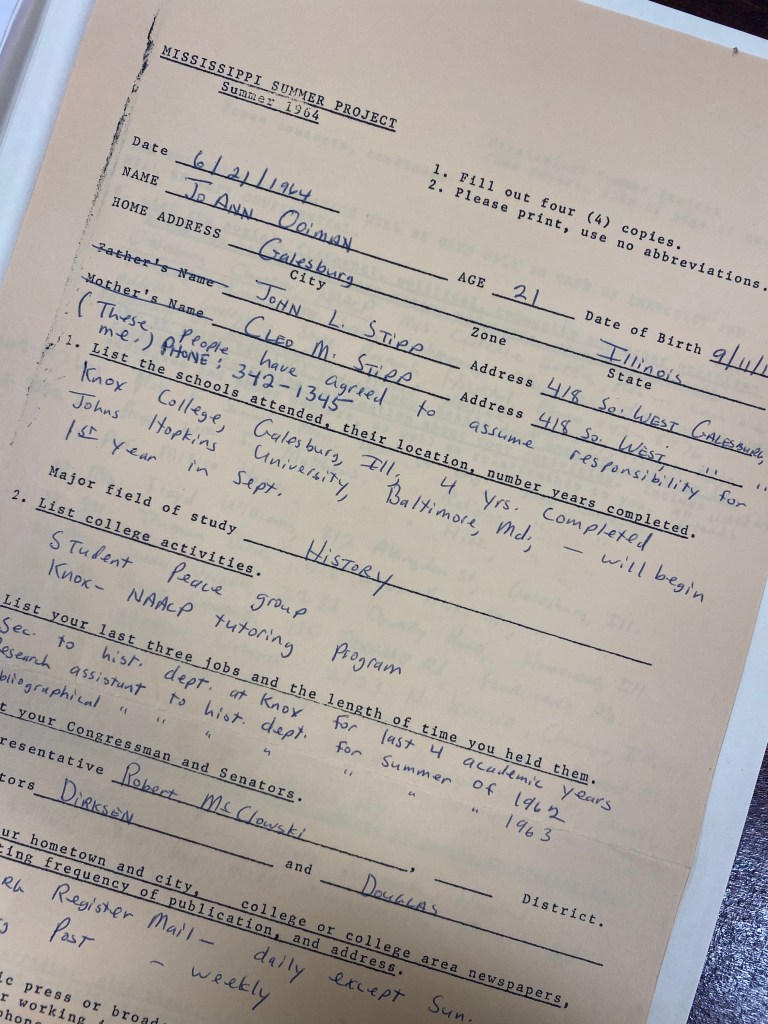 MISSISSIPPI SUMMER PROJECT
Summer 1964
1. Fill out four (4) copies.
2. Please print, use no abbreviations.
Date 6/21/1964
NAME Jo ANN OoiMAN AGE 21 Date of Birth 9/11/1
HOME ADDRESS Galesburg Illinois
City Zone State
Father's Name JOHN L. STIPP Address 418 So. WEST GALESBURG,
Mother's Name CLEO M. STIPP Address 418 So. WEST, " "
(These people have agreed to assume responsibility for
me.) PHONE: 342-1345
1. List the schools attended, their location, number years completed.
Knox College, Galesburg, Ill, 4 yrs. completed
Johns Hopkins University, Baltimore, Md; - will begin
1st year in Sept.
Major field of study HISTORY
2. List college activities.
Student Peace group
Knox - NAACP tutoring Program
List your last three jobs and the length of time you held them.
Sec. to hist. dept. at Knox for last 4 academic years
esearch assistant to hist. dept. for summer of 1962
bliographical " " " " " " " 1963
t your Congressman and Senators.
resentative Robert McClowski, District.
tors DIRKSEN and DOUGLAS
ur hometown and city, college or college area newspapers,
ting frequency of publication, and address.
Register Mail - daily except Sun.
Post - weekly
ic press or broad
r working
phone